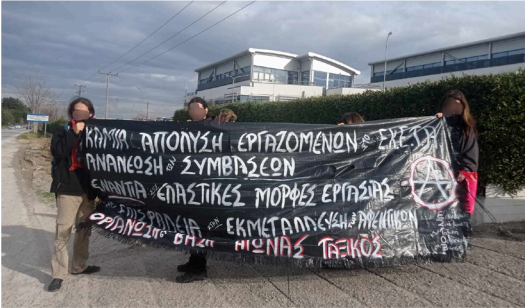 ΚΑΜΙΑ ΑΠΟΛΥΣΗ ΕΡΓΑΖΟΜΕΝΩΝ ΣΤΟ ΕΚΕΤΑ
ΑΝΑΝΕΩΣΗ ΤΩΝ ΣΥΜΒΑΣΕΩΝ
ΕΝΑΝΤΙΑ ΣΤΙΣ ΕΛΑΣΤΙΚΕΣ ΜΟΡΦΕΣ ΕΡΓΑΣΙΑΣ
ΕΚΜΕΤΑΛΛΕΥΣΗ ΤΩΝ ΑΦΕΝΤΙΚΩΝ
ΟΡΓΑΝΩΣΗ ΒΑΣΗ ΑΓΩΝΑΣ ΤΑΞΙΚΟΣ